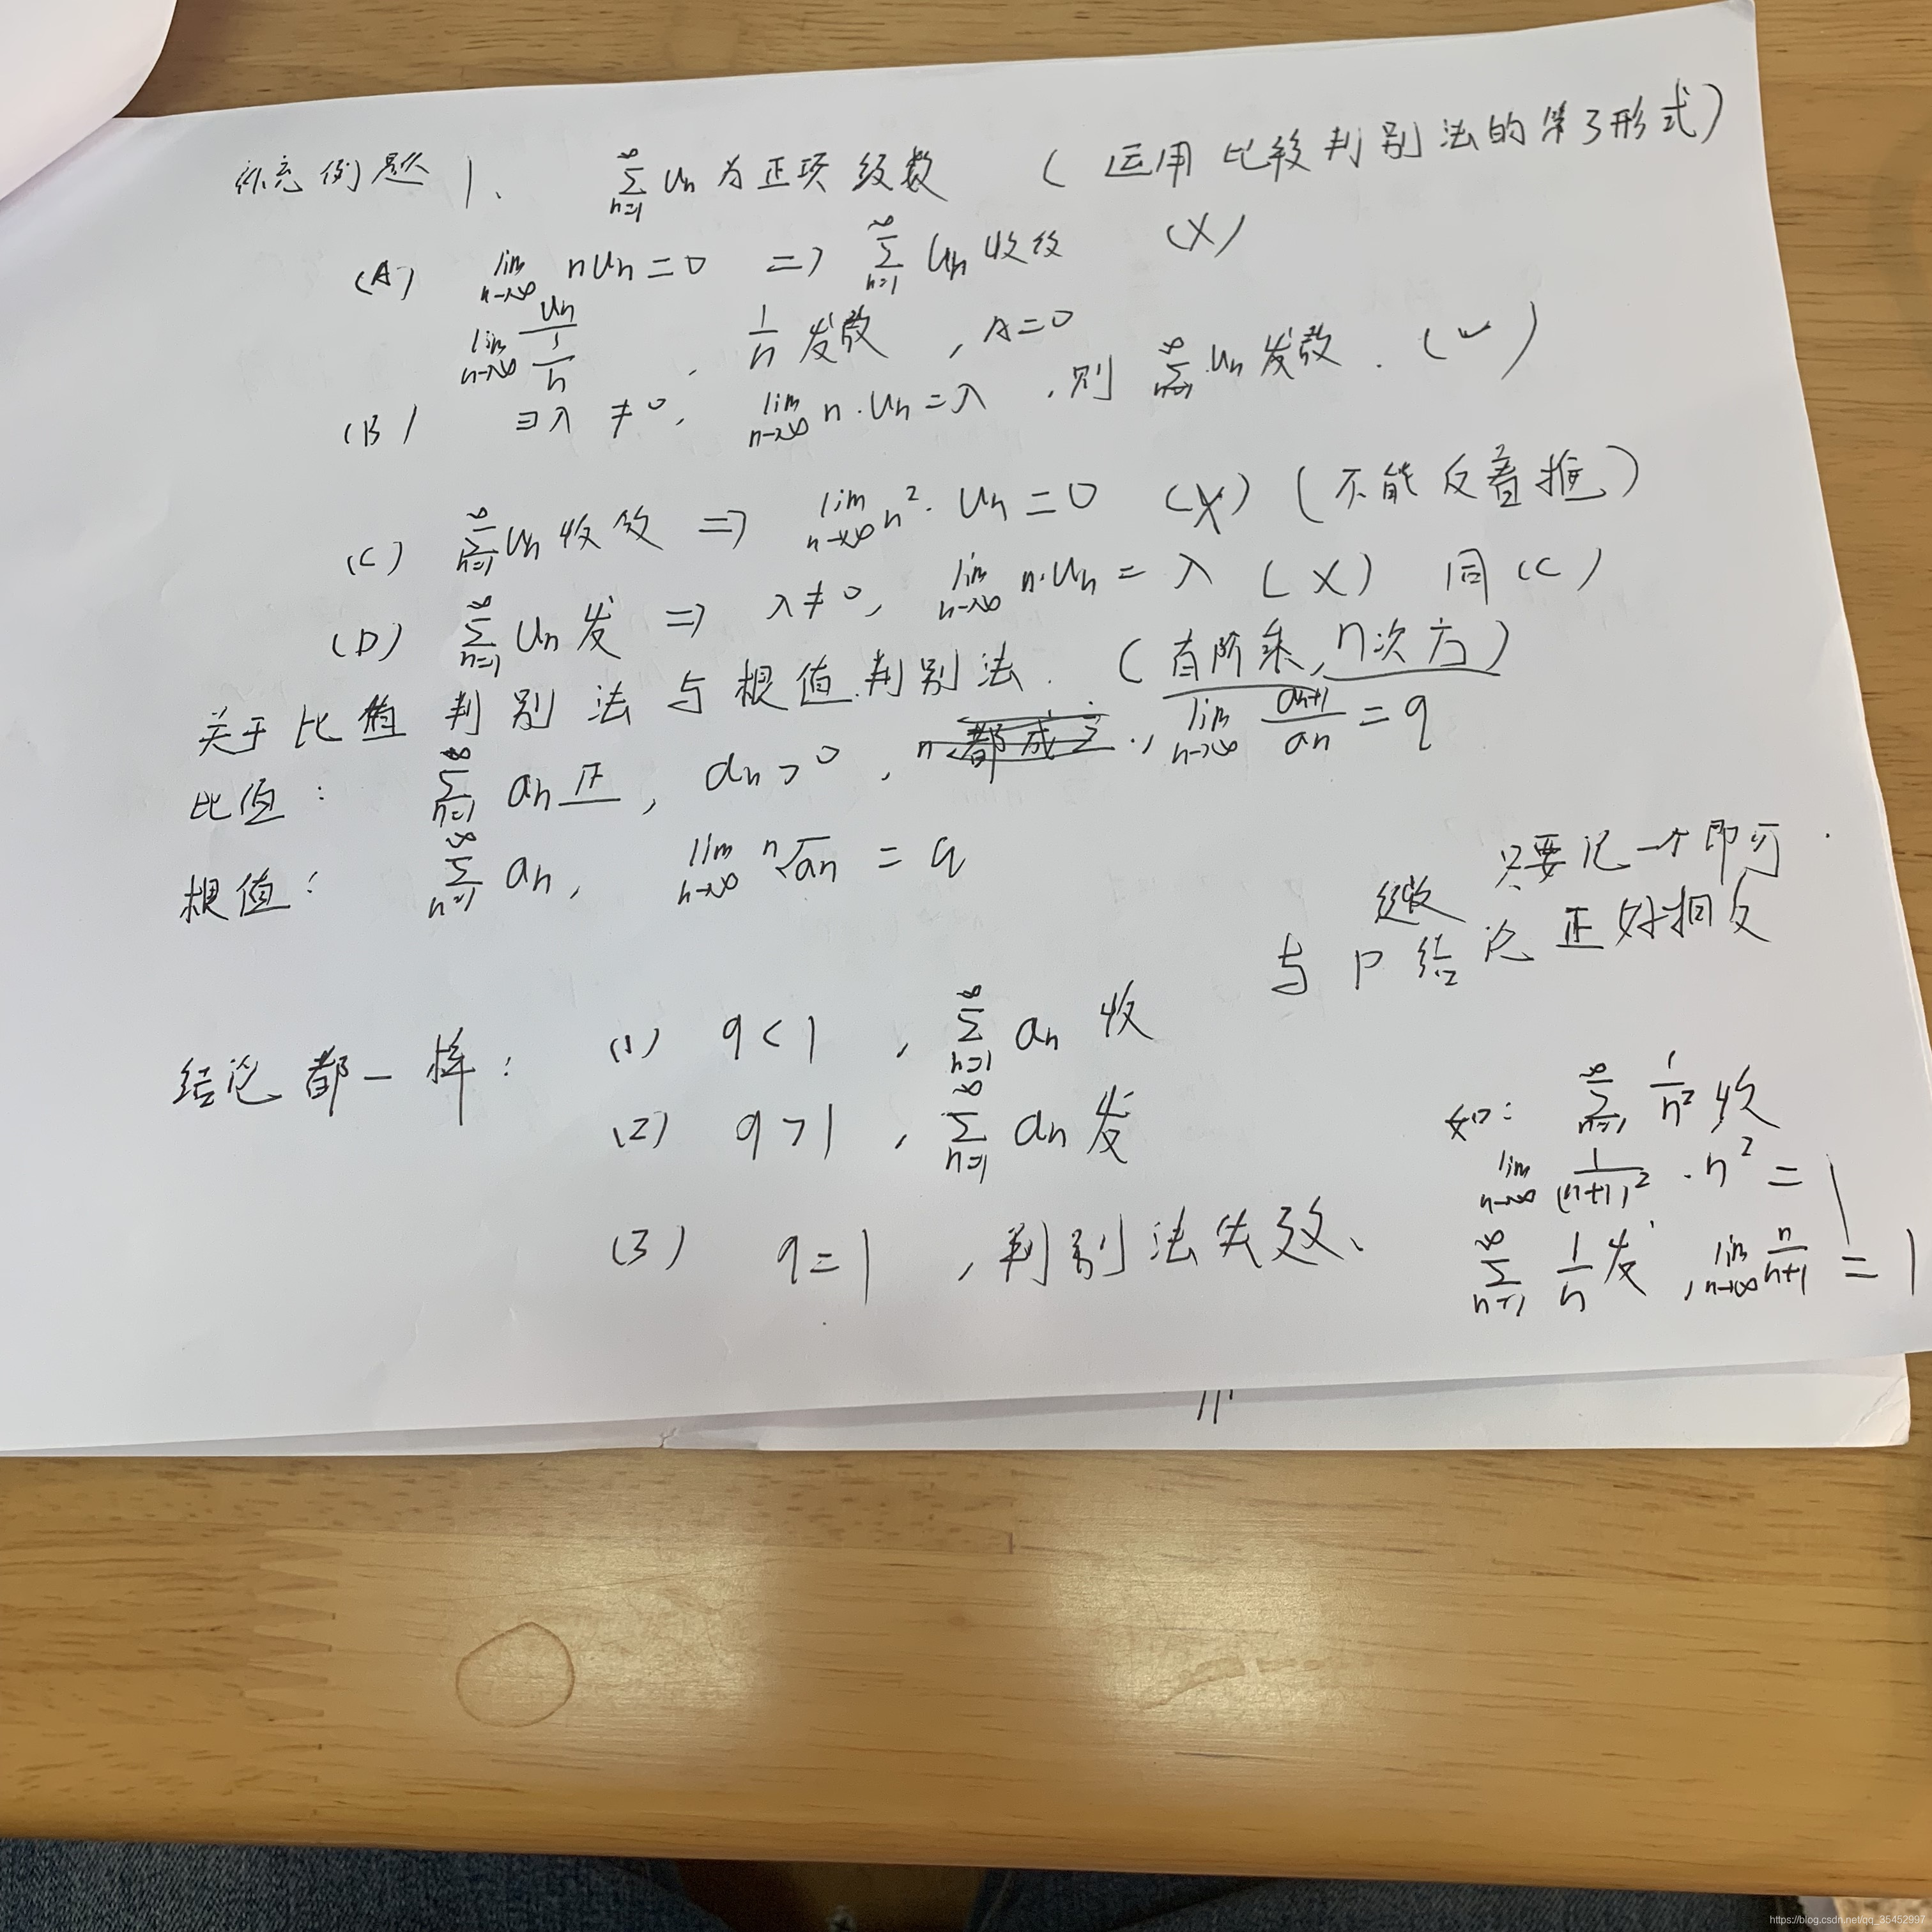 补充例题 1、 ∑_{n=1}^{∞} Un 为正项级数 ( 运用比较判别法的第3形式)
(A) lim_{n→∞} nUn = 0 ⇒ ∑_{n=1}^{∞} Un 收敛 (X)
lim_{n→∞} Un/(1/n) , 1/n 发散 , A=0
(B) ∃λ ≠ 0, lim_{n→∞} n·Un = λ , 则 ∑_{n=1}^{∞} Un 发散 . (✓)
(C) ∑_{n=1}^{∞} Un 收敛 ⇒ lim_{n→∞} n²·Un = 0 (X) (不能反着推)
(D) ∑_{n=1}^{∞} Un 发 ⇒ λ≠0, lim_{n→∞} n·Un = λ (X) 同(C)
关于比值判别法与根值判别法. (有阶乘, n次方)
比值: ∑_{n=1}^{∞} an 正, an>0, n 都成立., lim_{n→∞} an+1/an = q
根值: ∑_{n=1}^{∞} an, lim_{n→∞} ⁿ√an = q
只要记一个即可.
级数
与P结论正好相反
结论都一样: (1) q<1 , ∑_{n=1}^{∞} an 收
(2) q>1 , ∑_{n=1}^{∞} an 发
(3) q=1 , 判别法失效、
如: ∑_{n=1}^{∞} 1/n² 收
lim_{n→∞} 1/(n+1)² · n² = 1
∑_{n=1}^{∞} 1/n 发 , lim_{n→∞} n/(n+1) = 1
https://blog.csdn.net/qq_35452997